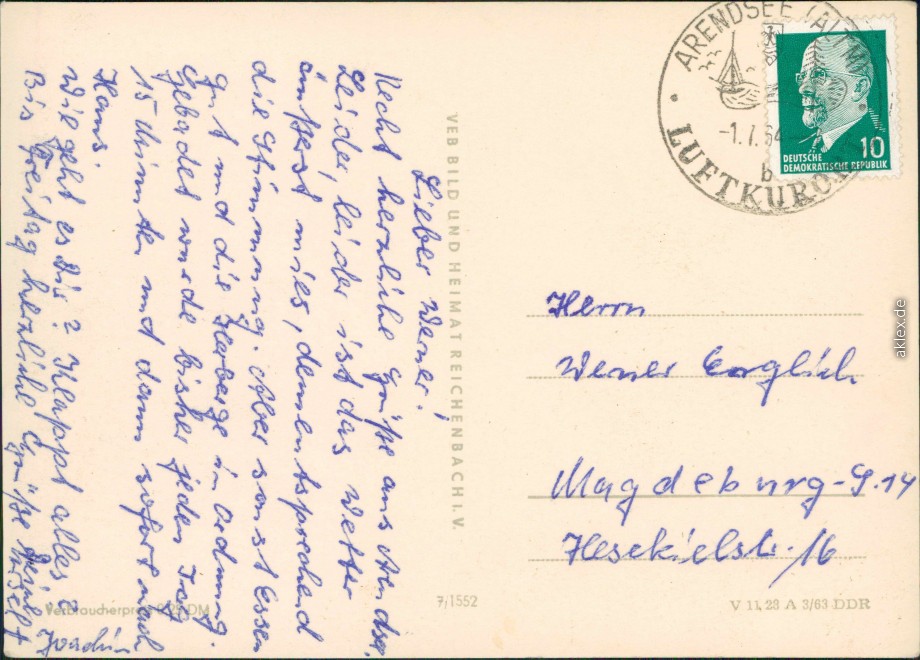 Lieber Werner!
Recht herzliche Grüße aus Arendsee.
Leider, leider ist das Wetter
äußerst mies, dementsprechend
die Stimmung. Aber sonst Essen
gut und die Herberge in Ordnung.
Gebadet wurde bisher jeden Tag
15 Minuten und dann sofort nach
Haus.
Wie geht es Dir? Klappt alles?
Bis Freitag herzliche Grüße
Joachim
VEB BILD UND HEIMAT REICHENBACH I. V.
Verbraucherpreis 0,25 DM
7/1552
V 11, 28 A 3/63 DDR
ARENDSEE (ALTM
-1.7.64
b
LUFTKURORT
10
DEUTSCHE
DEMOKRATISCHE REPUBLIK
Herrn
Werner Englich
Magdeburg-S.14
Hesekielstr. 16
aklex.de